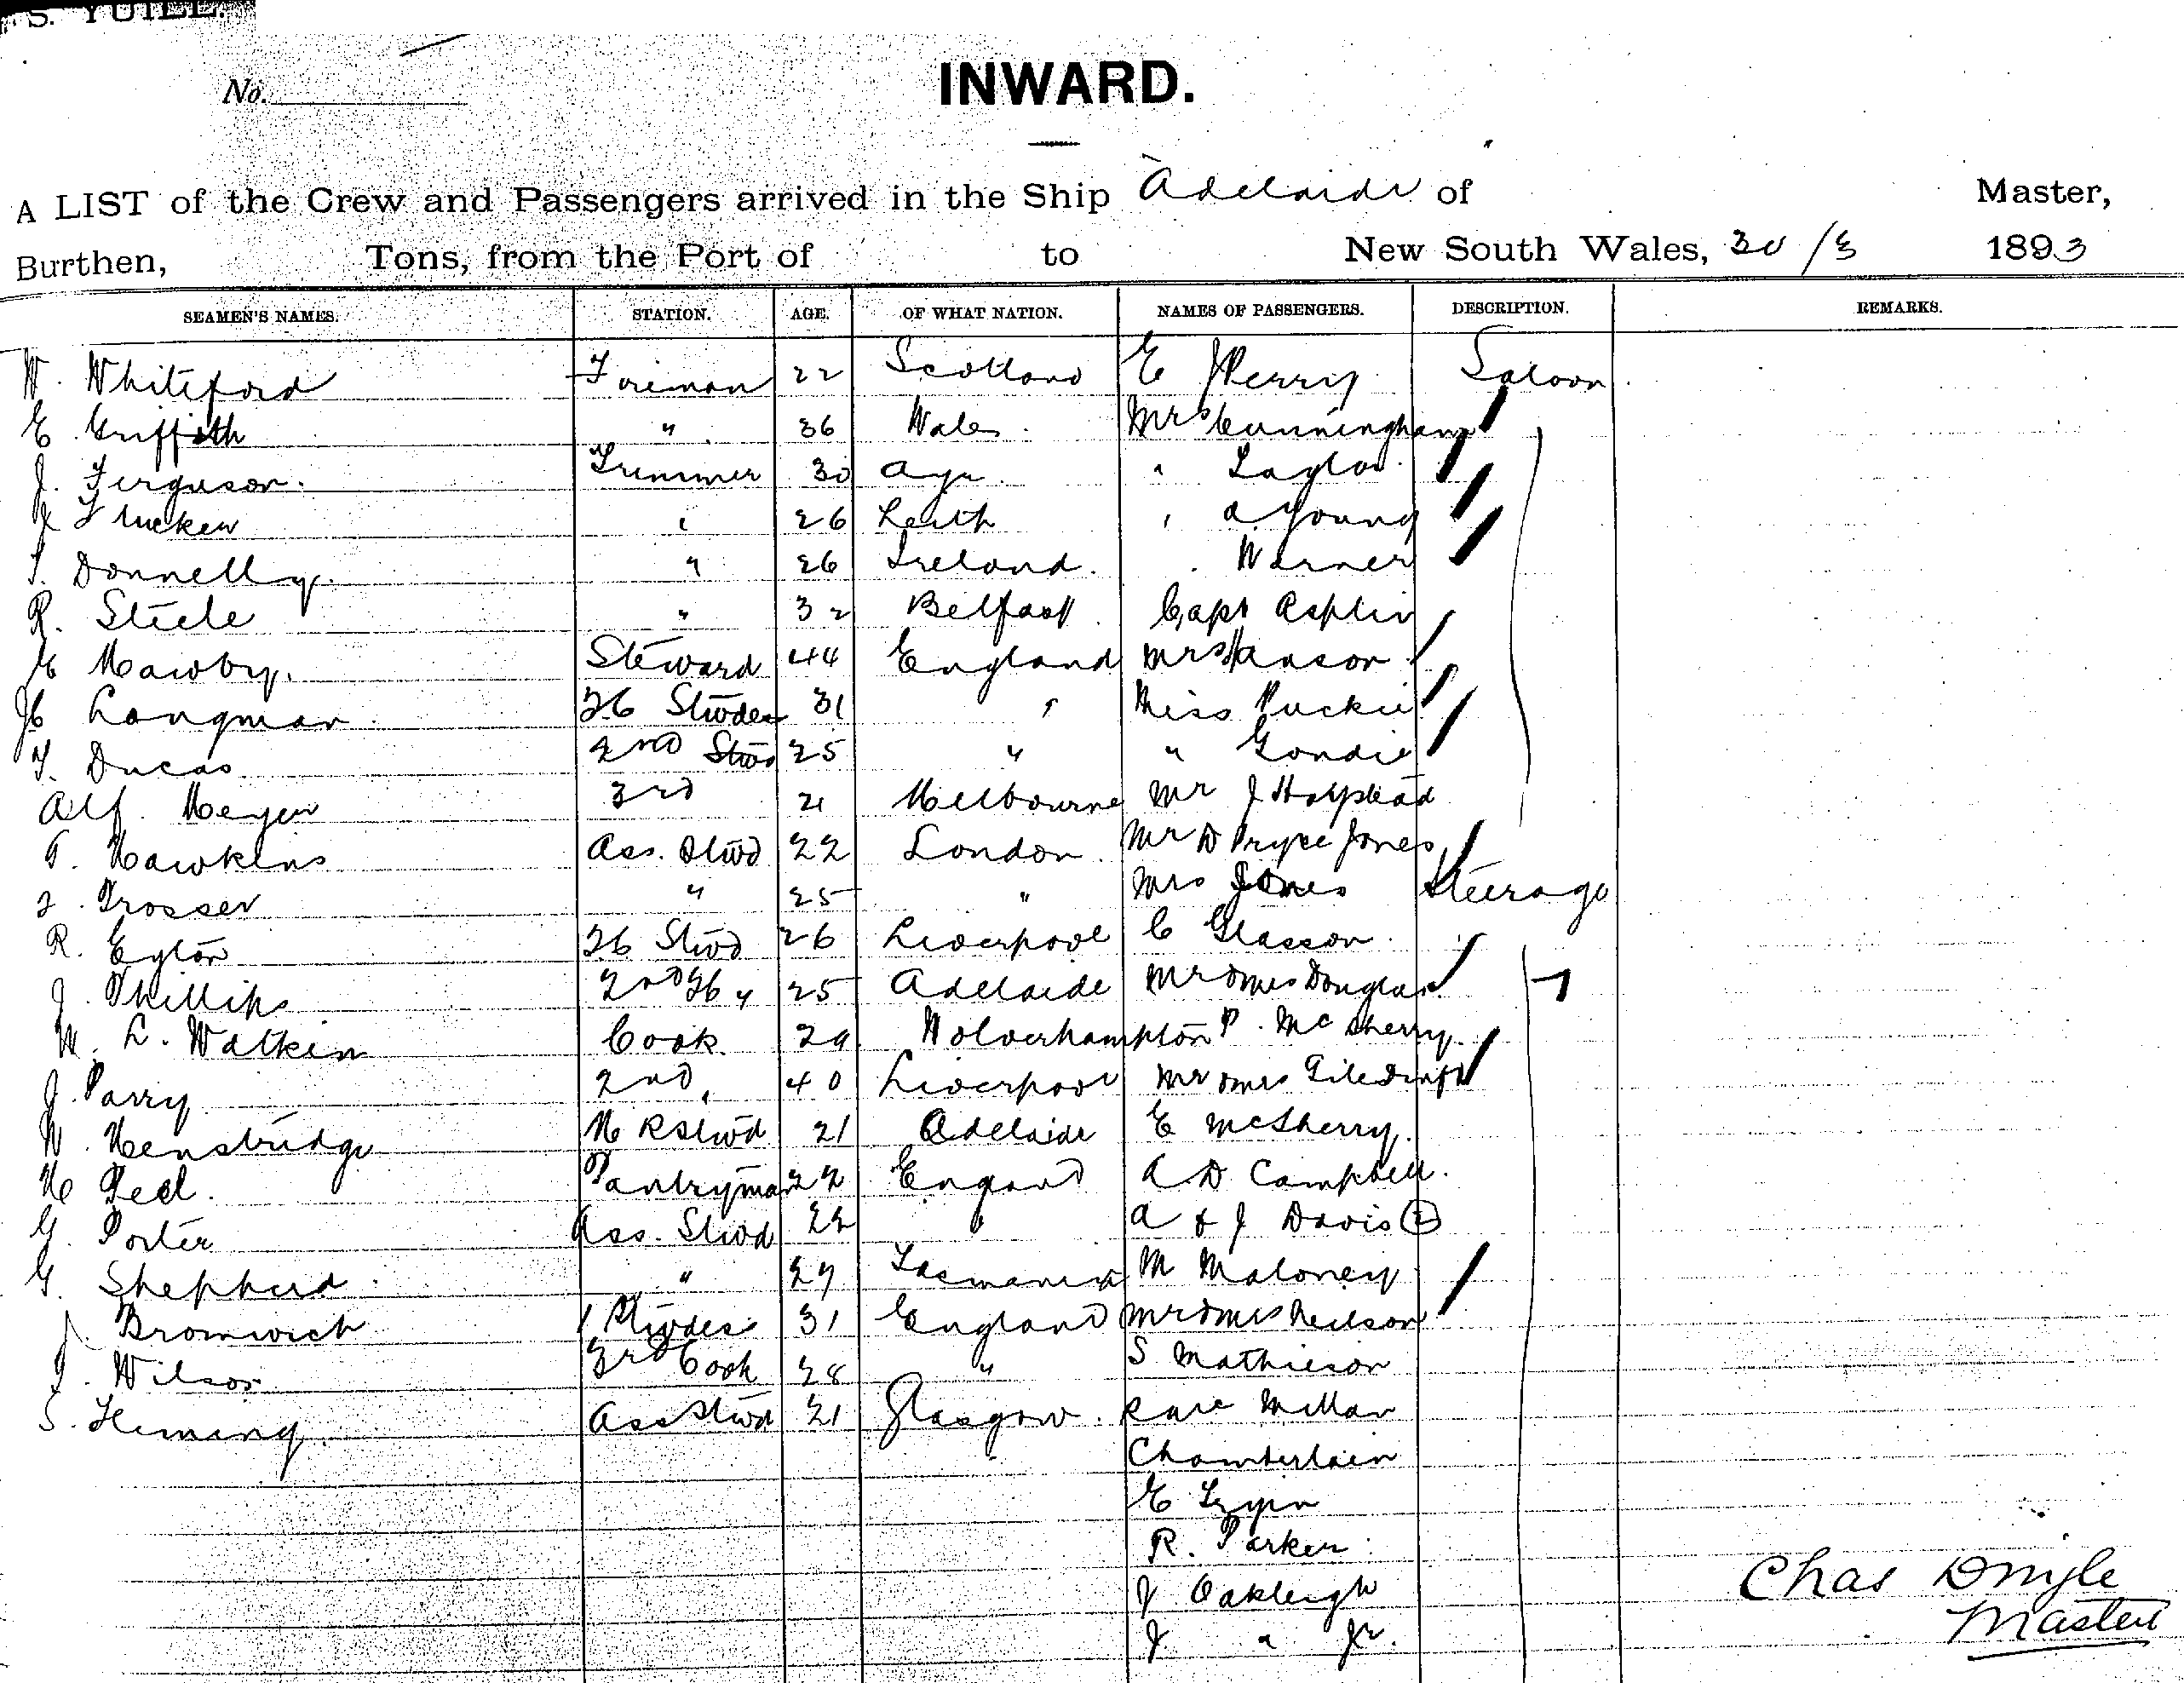 S. YUILL.
No.
INWARD.
A LIST of the Crew and Passengers arrived in the Ship Adelaide of Master,
Burthen, Tons, from the Port of to New South Wales, 30/3 1893
SEAMEN'S NAMES. STATION. AGE. OF WHAT NATION. NAMES OF PASSENGERS. DESCRIPTION. REMARKS.
W. Whiteford Fireman 22 Scotland E Perry Saloon
E. Griffith " 36 Wales Mrs Cunningham
J. Ferguson Trimmer 30 Ayr "
" 26 Leith " A. Young
Donnelly " 26 Ireland " Warner
R. Steele " 32 Belfast Capt Asplin
Mawby Steward 44 England Mrs Hanson
Longman Stwdess 31 " Miss
Ducas 2nd Stwd 25 " "
Alf. Meyer 3rd 21 Melbourne Mr J
Hawkins Ass. Stwd 22 London Mr D Pryce Jones
Prosser " 25 " Mrs Jones Steerage
R. Eyton Stwd 26 Liverpool C Glasson
J. Phillips 2nd " 25 Adelaide Mr & Mrs Douglas
W. L. Watkin Cook 29 Wolverhampton P. McSherry
J. Parry 2nd " 40 Liverpool Mr & Mrs
W. Henstridge M R Stwd 21 Adelaide E McSherry
H Peel Pantryman 22 England A D Campbell
G. Porter Ass. Stwd 22 " A & J Davis 2
G. Shepherd " 27 Tasmania M Maloney
J. Bromwich 1 Stwdess 31 England Mr & Mrs Neilson
J. Wilson 3rd Cook 28 " S Mathieson
S. Fleming Ass Stwd 21 Glasgow Millar
Chamberlain
E
R. Parker
J Oakleigh
J " Jr.
Chas
Master